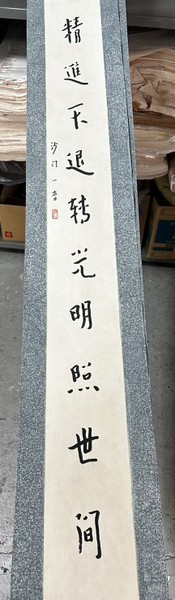 精進不退轉光明照世間
沙門一音